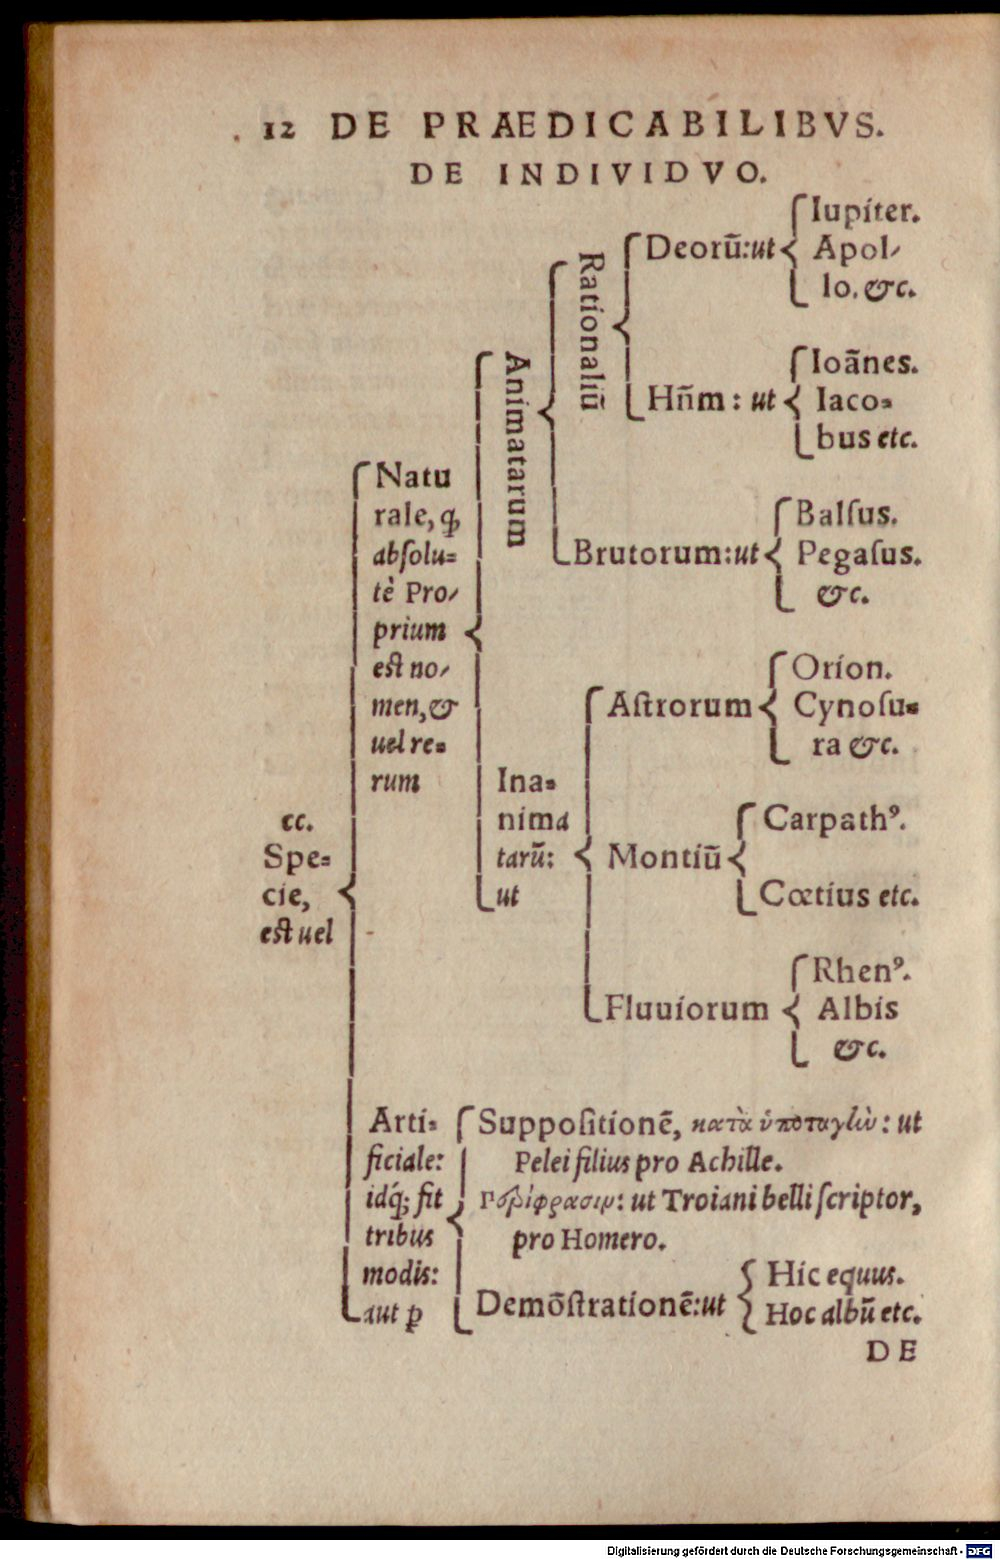 12 DE PRAEDICABILIBVS.
DE INDIVIDVO.
cc.
Spe=
cie,
est uel
Natu
rale, ꝙ
absolu=
tè Pro/
prium
est no/
men, &
uel re=
rum
Animatarum
Rationaliū
Deorū: ut
Iupiter.
Apol/
lo. &c.
Hñm: ut
Ioānes.
Iaco=
bus etc.
Brutorum: ut
Balſus.
Pegaſus.
&c.
Ina=
nima
tarū:
ut
Aſtrorum
Orion.
Cynoſu=
ra &c.
Montiū
Carpathꝰ.
Cœtius etc.
Fluuiorum
Rhenꝰ.
Albis
&c.
Arti=
ficiale:
idq́; fit
tribus
modis:
aut ꝑ
Suppoſitionē, κατὰ ὑποταγὴν: ut
Pelei filius pro Achille.
περίφρασιν: ut Troiani belli ſcriptor,
pro Homero.
Demōſtrationē: ut
Hic equus.
Hoc albū etc.
DE
Digitalisierung gefördert durch die Deutsche Forschungsgemeinschaft - DFG